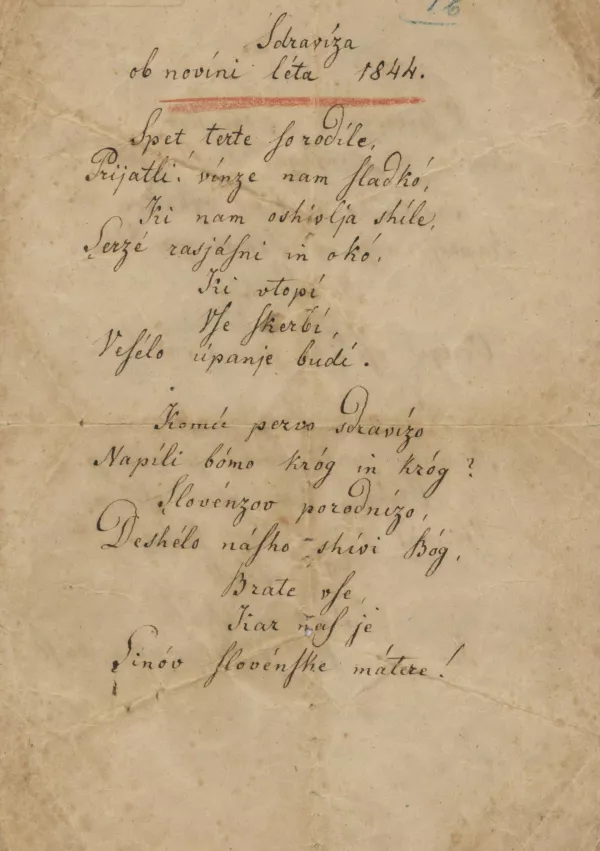 16
Sdravíza
ob novíni léta 1844.
Spet terte so rodíle,
Prijatli! vínze nam sladkó,
Ki nam oshívlja shíle,
Serzé rasjásni in okó,
Ki vtopí
Vse skerbí,
Vesélo úpanje budí.
Komú pervo sdravízo
Napíli bómo króg in króg?
Slovénzov porodnízo,
Deshélo násho shívi Bóg,
Brate vse,
Kar nas je
Sinóv slovénske mátere!